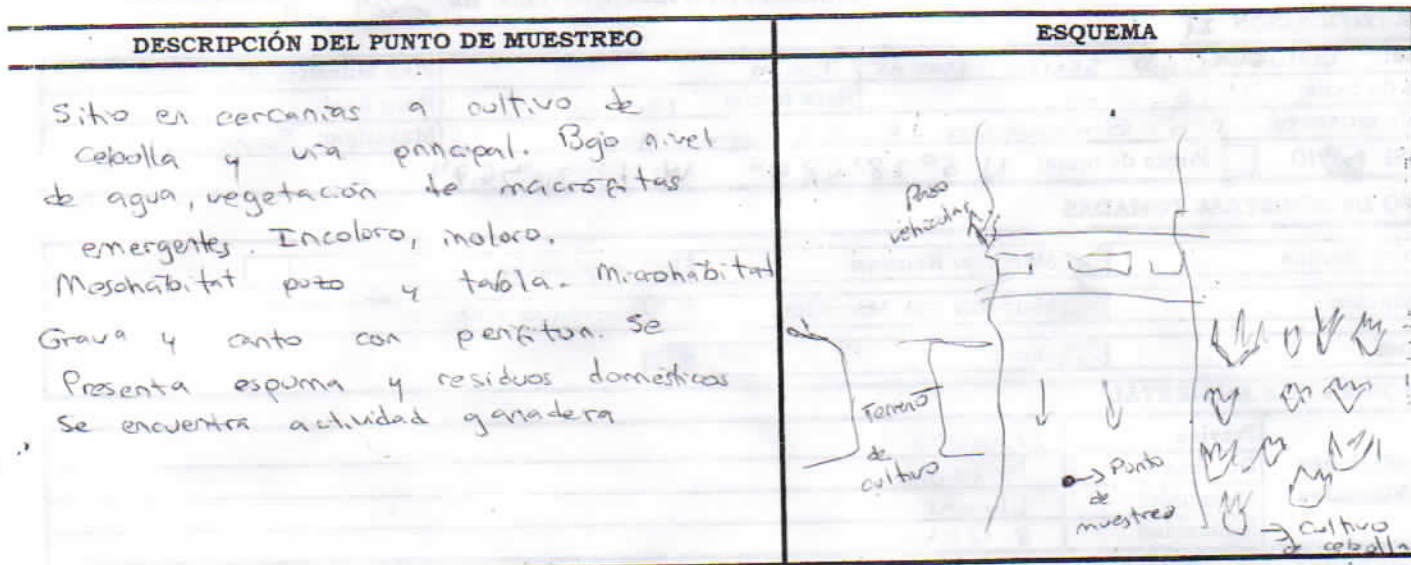 DESCRIPCIÓN DEL PUNTO DE MUESTREO
Sitio en cercanias a cultivo de
cebolla y via principal. Bajo nivel
de agua, vegetación de macrófitas
emergentes. Incoloro, inoloro.
Mesohábitat pozo y tabla. Microhábitat
Grava y canto con perifiton. Se
Presenta espuma y residuos domésticos
Se encuentra actividad ganadera
ESQUEMA
Paso
vehicular
Terreno
de
cultivo
Punto
de
muestreo
Cultivo
de cebolla